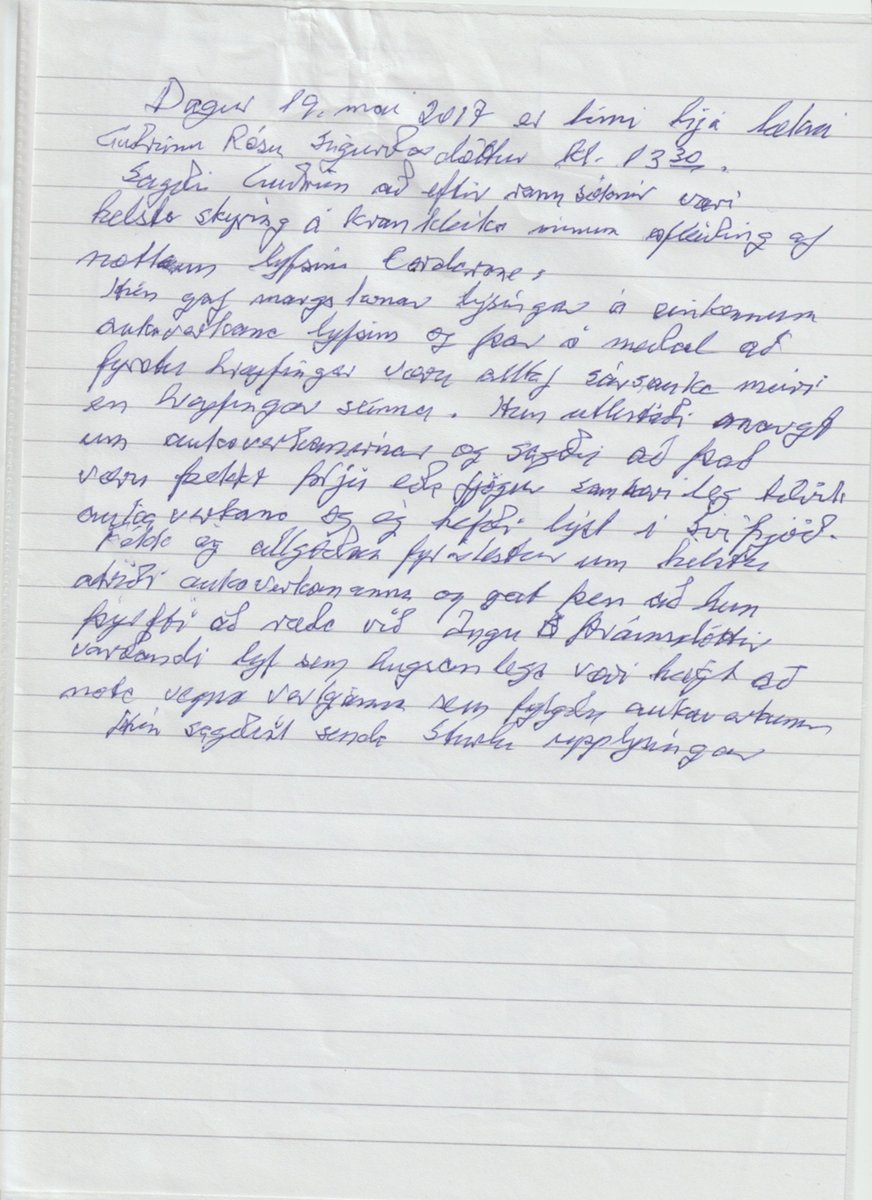 Dagur 19. maí 2017 er tími hjá lækni
Guðrúnu Rósu Sigurðardóttur kl. 13 30.
Sagði Guðrún að eftir rannsóknir væri
helsta skyring á krankleika mínum afleiðing af
notkun lyfsins Cordarone,
Hún gaf margskonar lysingar á einkennum
aukaverkana lyfsins og þar á meðal að
fyrstu hreyfingar væru alltaf sársauka meiri
en hreyfingar seinna. Hún útlistaði margt
um aukaverkanirnar og sagði að það
væru þekkt þrjú eða fjögur sambærileg tilvik
aukaverkana og ég hefði lýst í Svíþjóð.
ég allgóðan fyrirlestur um helstu
atriði aukaverkananna og gat þess að hun
þyrfti að ræða við Ingu Þráinsdóttir
varðandi lyf sem hugsanlega væri hægt að
nota vegna verkjanna sem fylgdu aukaverkunum
Hún sagðist senda Sturlu upplysingar